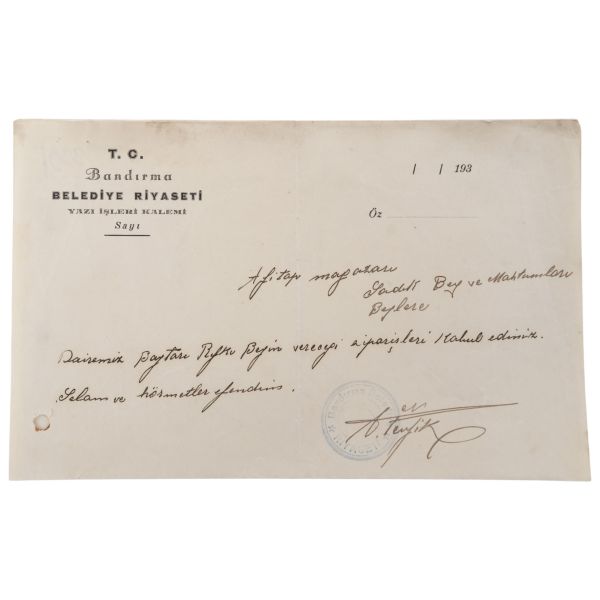 T. C.
Bandırma
BELEDİYE RİYASETİ
YAZI İŞLERİ KALEMİ
Sayı
/ / 193
Öz
Afitap mağazası
Sadık Bey ve Mahtumları
Beylere
Dairemiz Baytarı Rıfkı Beyin vereceği siparişleri Kabul ediniz.
Selam ve hörmetler efendim.
A. Tevfik
Bandırma